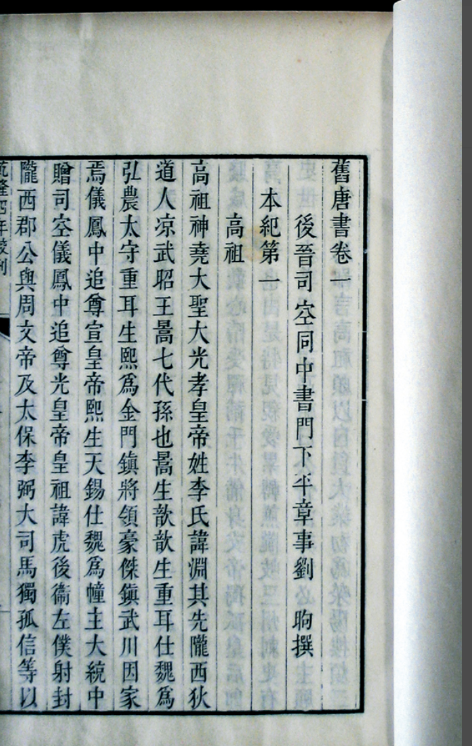 舊唐書卷一
後晉司空同中書門下平章事劉昫撰
本紀第一
高祖
高祖神堯大聖大光孝皇帝姓李氏諱淵其先隴西狄
道人涼武昭王暠七代孫也暠生歆歆生重耳仕魏為
弘農太守重耳生熙為金門鎮將領豪傑鎮武川因家
焉儀鳳中追尊宣皇帝熙生天錫仕魏為幢主大統中
贈司空儀鳳中追尊光皇帝皇祖諱虎後衛左僕射封
隴西郡公與周文帝及太保李弼大司馬獨孤信等以
乾隆四年校刊